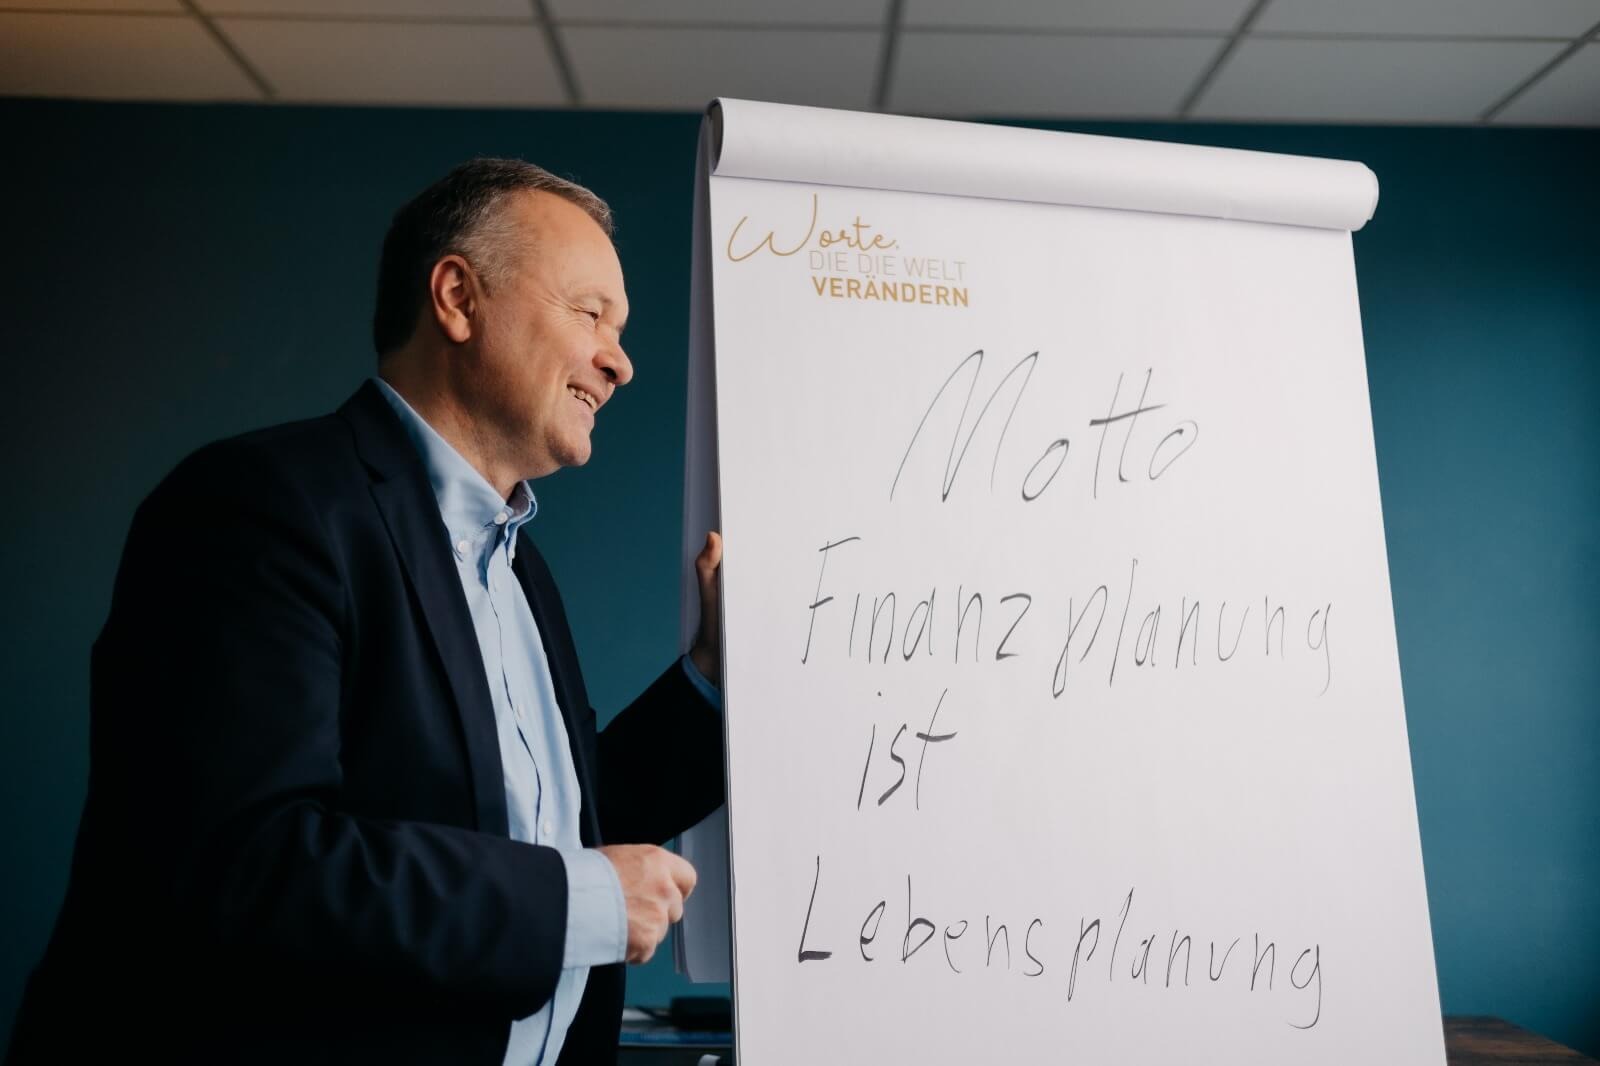 Worte,
DIE DIE WELT
VERÄNDERN
Motto
Finanzplanung
ist
Lebensplanung